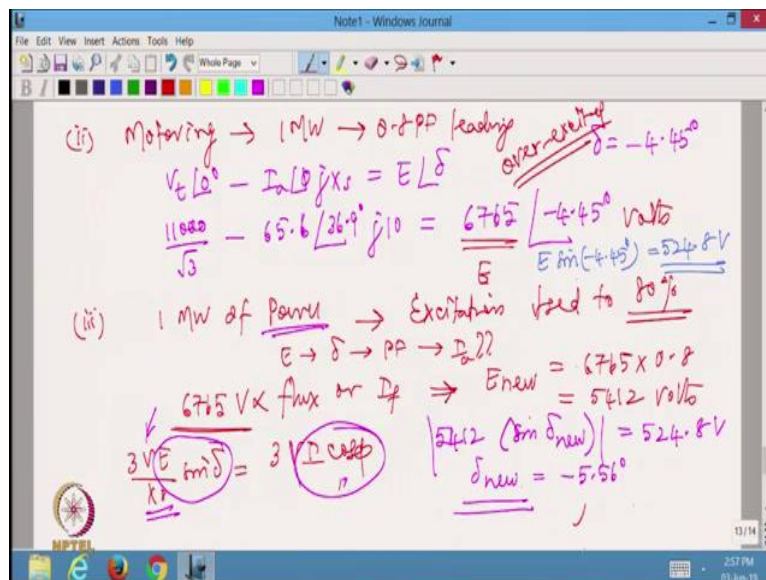 Note1 - Windows Journal
File Edit View Insert Actions Tools Help
Whole Page
B I
(ii) Motoring → 1 MW → 0.8 PF leading
over-excited
δ = -4.45°
Vt∠0° - Ia∠φ jXs = E∠δ
11000/√3 - 65.6∠36.9° j10 = 6765∠-4.45° volts
E
E sin(-4.45°) = 524.8 V
(iii) 1 MW of Power → Excitation to 80%
E → δ → PF → Ia??
6765 V ∝ flux or If ⇒ Enew = 6765 x 0.8
= 5412 volts
3VE/Xs sin δ = 3 V I cosφ
|5412 (sin δnew)| = 524.8 V
δnew = -5.56°
NPTEL
13/14
2:57 PM